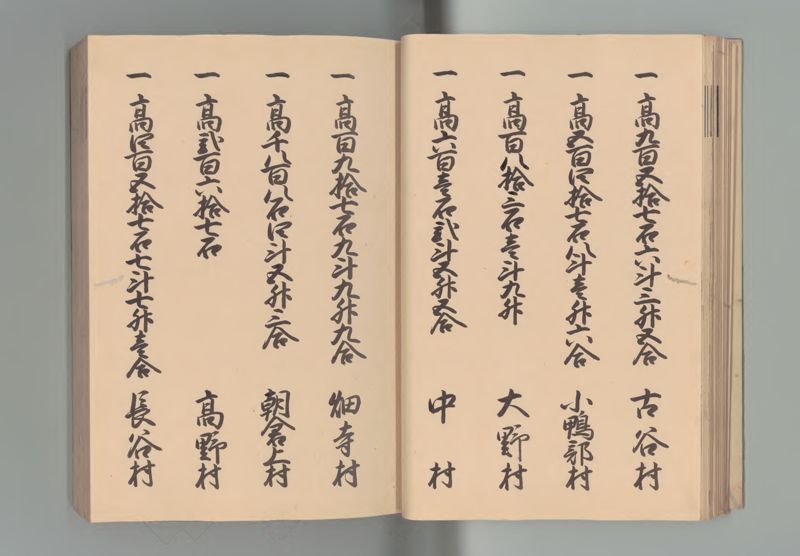 一 高九百五拾七石六斗三升五合 古谷村
一 高五百四拾七石八斗壱升六合 小鴨部村
一 高百八拾三石壱斗九升 大野村
一 高六百壱石弐斗五升五合 中村
一 高百九拾七石九斗九升九合 畑寺村
一 高千八百八石四斗五升三合 朝倉上村
一 高弐百六拾七石 高野村
一 高四百五拾七石七斗七升壱合 長谷村